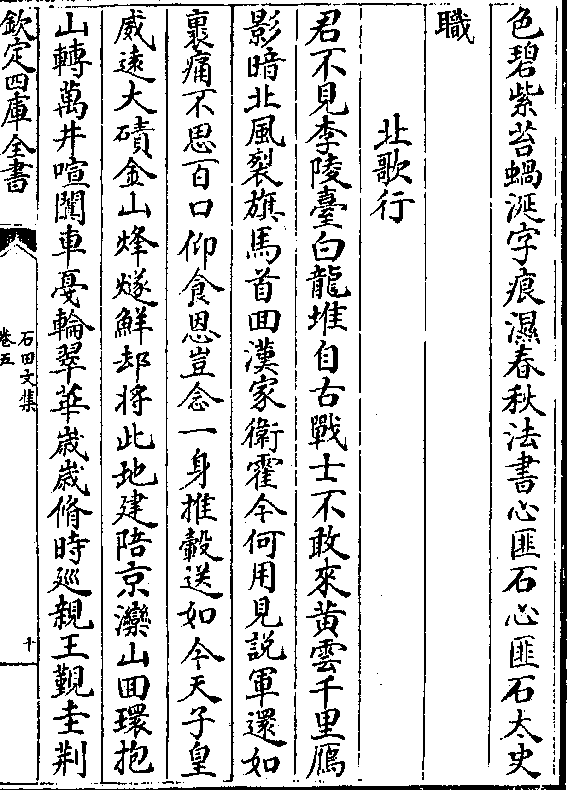 色碧紫苔蝸涎字痕濕春秋法書心匪石心匪石太史
職
北歌行
君不見李陵臺白龍堆自古戰士不敢來黃雲千里鴈
影暗北風裂旗馬首回漢家衛霍今何用見說軍還如
裹痛不思百口仰食恩豈念一身推轂送如今天子皇
威遠大磧金山烽燧鮮却將此地建陪京灤山回環抱
山轉萬井喧闐車戞輪翠華歲歲脩時廵親王覲圭荆
欽定四庫全書
石田文集
卷五
十